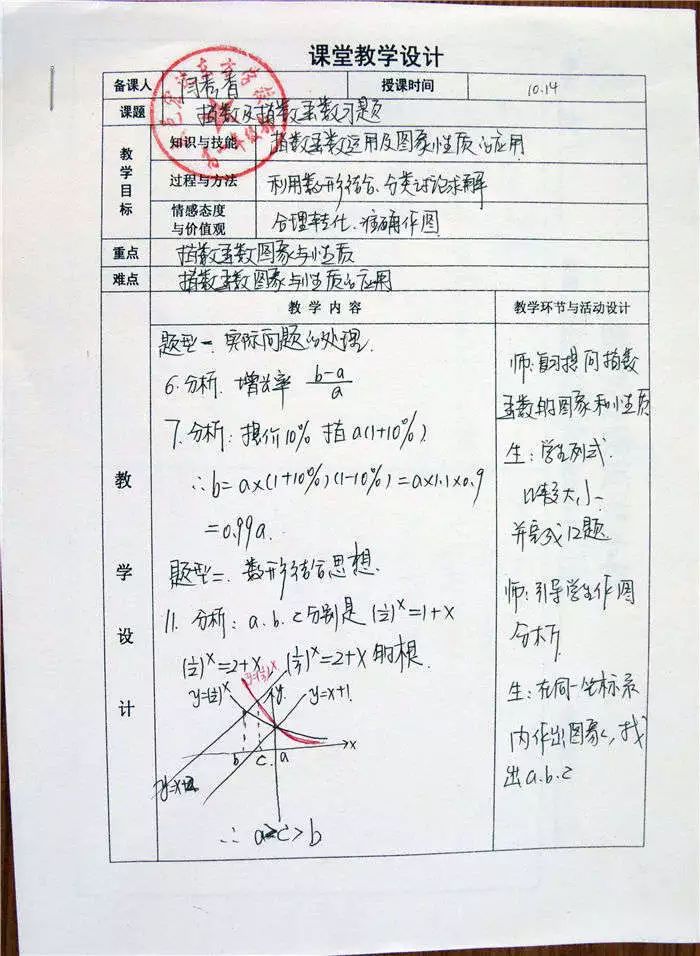 课堂教学设计
备课人 闫秀香 授课时间 10.14
课题 指数及指数函数习题
教学目标 知识与技能 指数函数运用及图象性质的应用
过程与方法 利用数形结合、分类讨论求解
情感态度与价值观 合理转化、准确作图
重点 指数函数图象与性质
难点 指数函数图象与性质的应用
教学设计
教学内容
题型一、实际问题的处理.
6.分析. 增长率 (b-a)/a
7.分析: 提价10% 指a(1+10%)
∴b=a×(1+10%)(1-10%)=a×1.1×0.9
=0.99a.
题型二、数形结合思想.
11. 分析: a.b.c分别是 (1/2)^x=1+x
(1/2)^x=2+x (1/3)^x=2+x 的根.
y=(1/2)^x y=(1/3)^x y y=x+1
x
b c a
y=x+2
∴ a>c>b
教学环节与活动设计
师:复习提问指数
函数的图象和性质
生:学生列式.
比较大小
并完成12题
师:引导学生作图
分析.
生:在同一坐标系
内作出图象,找
出a.b.c